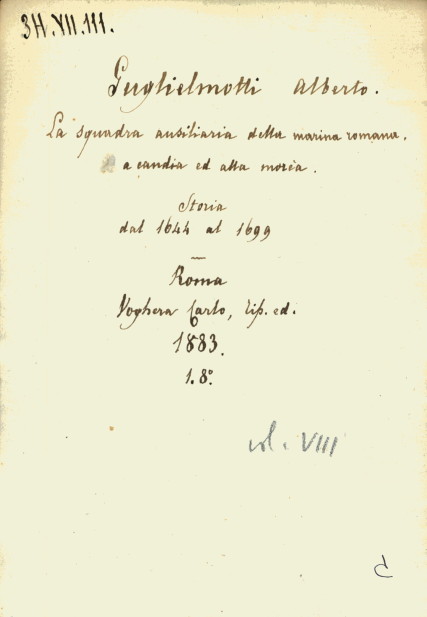 3H.VII.111.
Guglielmotti Alberto.
La squadra ausiliaria della marina romana.
a candia ed alla morèa.
Storia
dal 1644 al 1699
Roma
Voghera Carlo, tip. ed.
1883.
1.8°.
vol. VIII